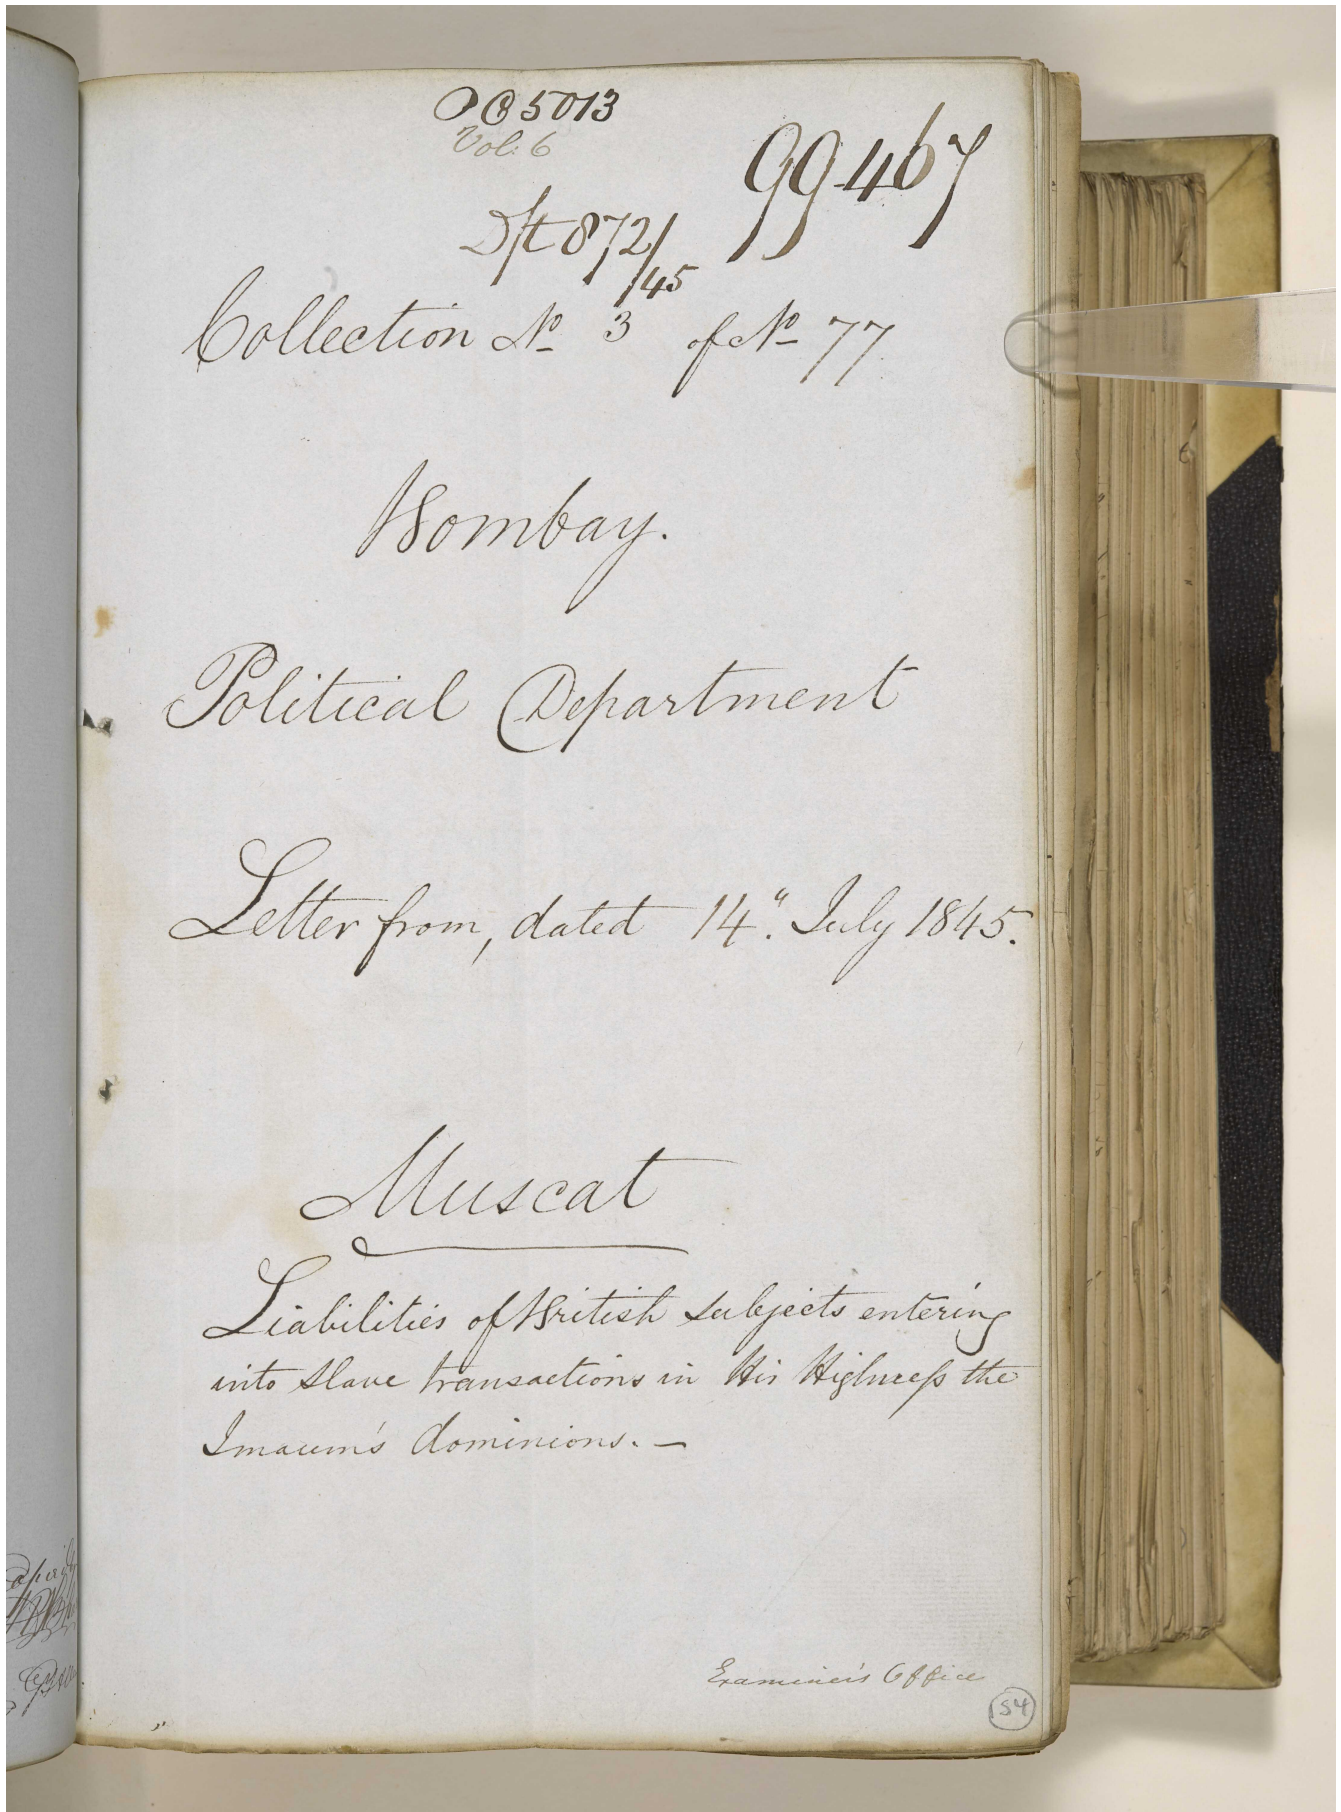 OC 5013
Vol: 6
99467
Dft 872/45
Collection No 3 of No 77
Bombay.
Political Department
Letter from, dated 14". July 1845.
Muscat
Liabilities of British subjects entering
into Slave transactions in His Highness the
Imaum's dominions. —
Examiner's Office
54